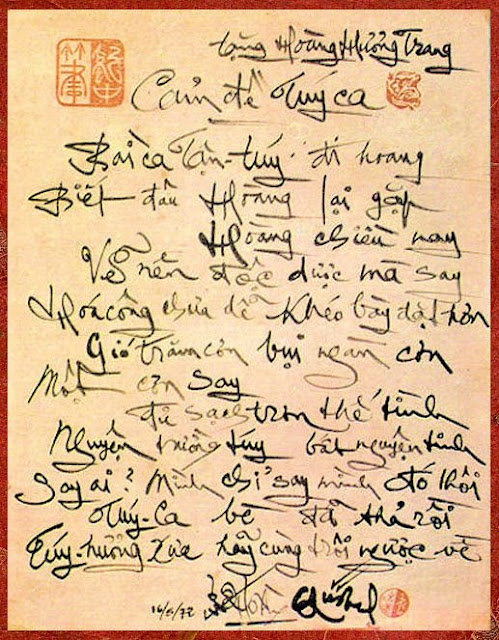 tặng Hoàng Hương Trang
Cảm đề Túy ca
Bài ca Tận-túy đi hoang
Biết đâu Hoàng lại gặp
Hoàng chiều nay
Vẽ nên độc dược mà say
Hóa công chưa dễ khéo bày đặt hơn
Gió trăng còn bụi ngàn cơn
Một cơn say
đủ sạch trơn thế tình
Nguyện trường túy bất nguyện tỉnh
Say ai? Mình chỉ say mình đó thôi
Túy-Ca bè đã thả rồi
Túy-hương xưa hãy cùng trôi ngược về